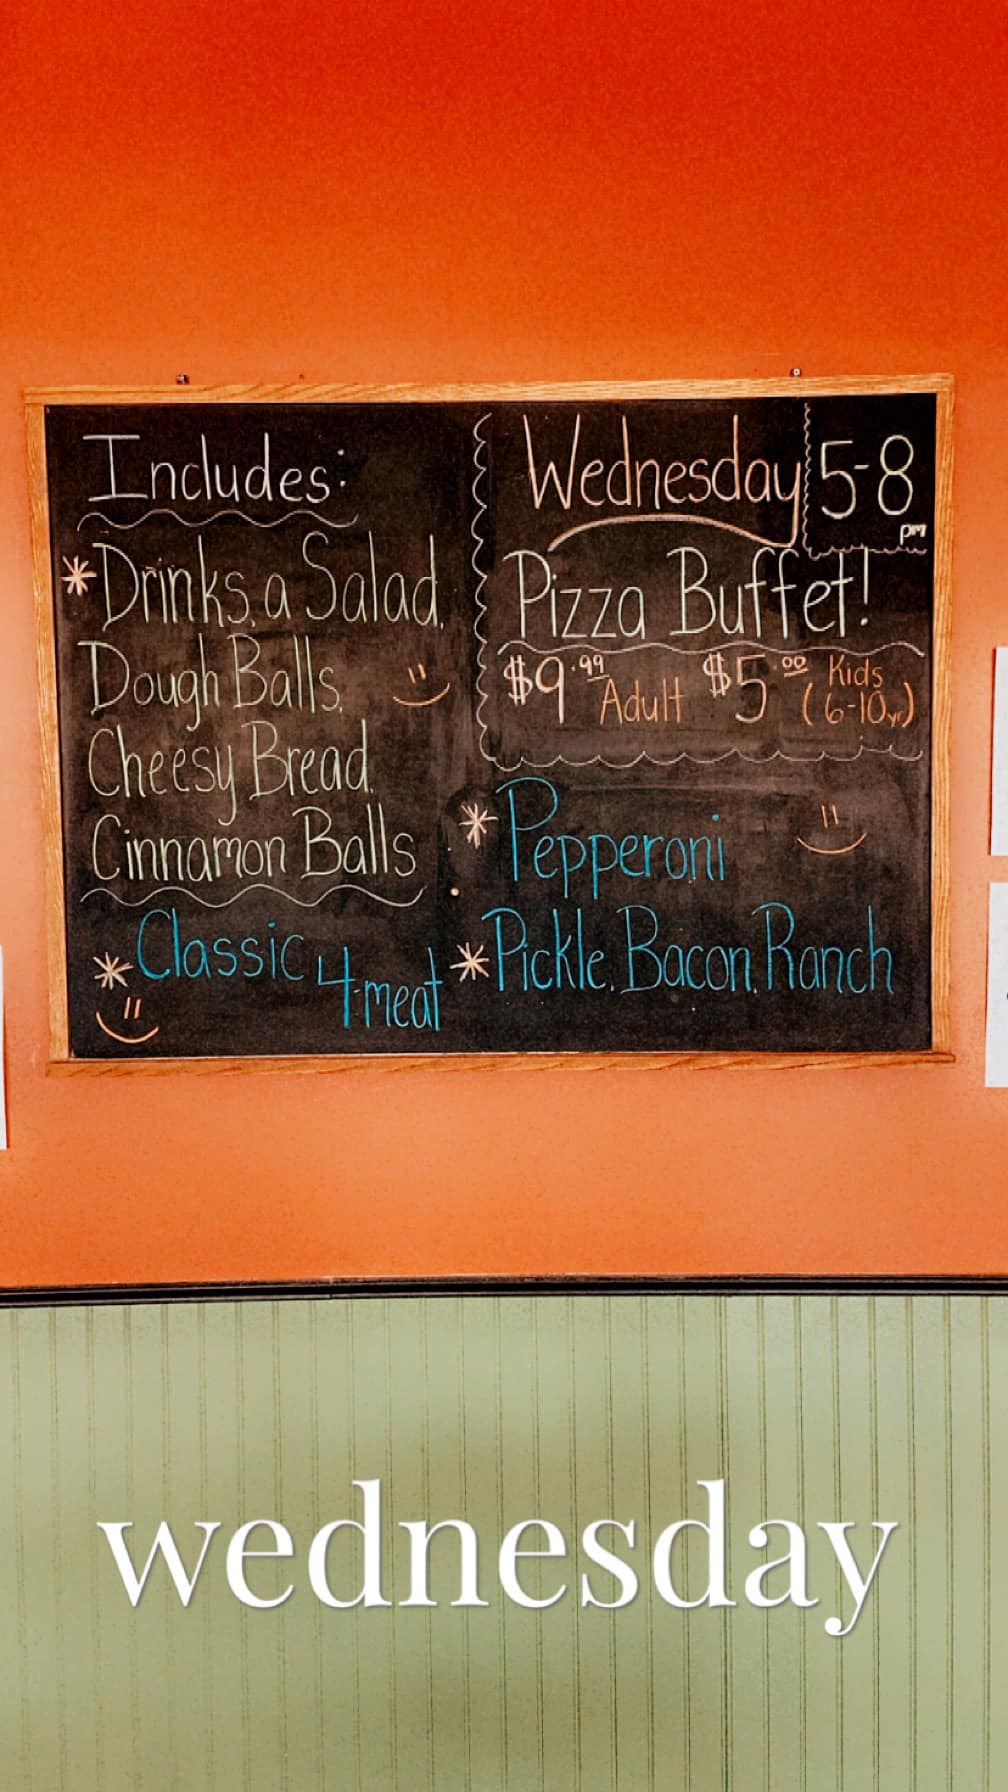 Includes:
*Drinks, a Salad,
Dough Balls,
Cheesy Bread,
Cinnamon Balls
*Classic 4-meat
Wednesday 5-8 pm
Pizza Buffet!
$9.99 Adult $5.00 Kids (6-10yr)
*Pepperoni
*Pickle, Bacon, Ranch
wednesday